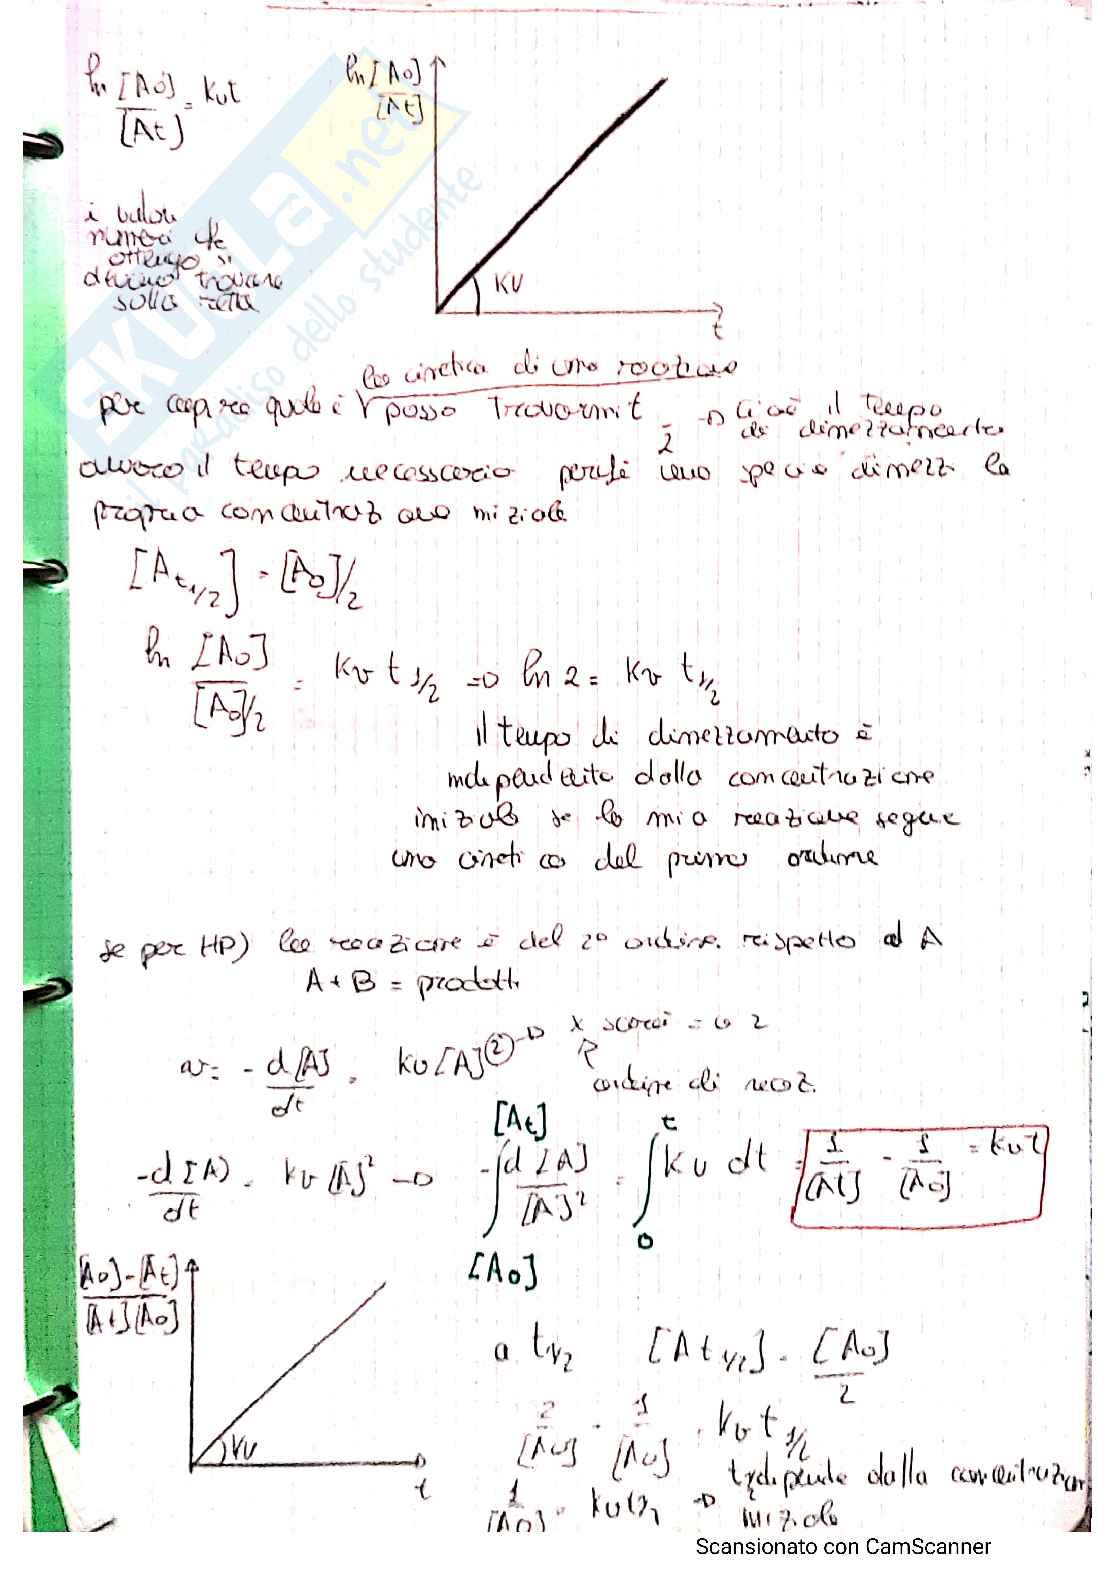 ln [A0]/[At] = kv t
ln [A0]/[At]
i valori
numeri che
ottengo si
devono trovare
sulla retta
kv
t
SKUOLA.net
il paradiso dello studente
la cinetica di una reazione
per capire qual è posso trovarmi t 1/2 → cioè il tempo di dimezzamento
ovvero il tempo necessario perché una specie dimezzi la
propria concentrazione iniziale
[A t1/2] = [A0]/2
ln [A0]/[A0]/2 = kv t1/2 ⇒ ln 2 = kv t1/2
il tempo di dimezzamento è
indipendente dalla concentrazione
iniziale se la mia reazione segue
una cinetica del primo ordine
se per HP) la reazione è del 2° ordine rispetto ad A
A + B = prodotti
v = - d[A]/dt = kv[A]② → x = 2
ordine di reaz.
-d[A]/dt = kv[A]² → -∫ d[A]/[A]² = ∫ kv dt = 1/[At] - 1/[A0] = kv t
[At]
t
[A0]
0
[A0]-[At]/[At][A0]
kv
t
a t1/2 [A t1/2] = [A0]/2
2/[A0] - 1/[A0] = kv t1/2
1/[A0] = kv t1/2 → t1/2 dipende dalla concentrazione
iniziale
Scansionato con CamScanner